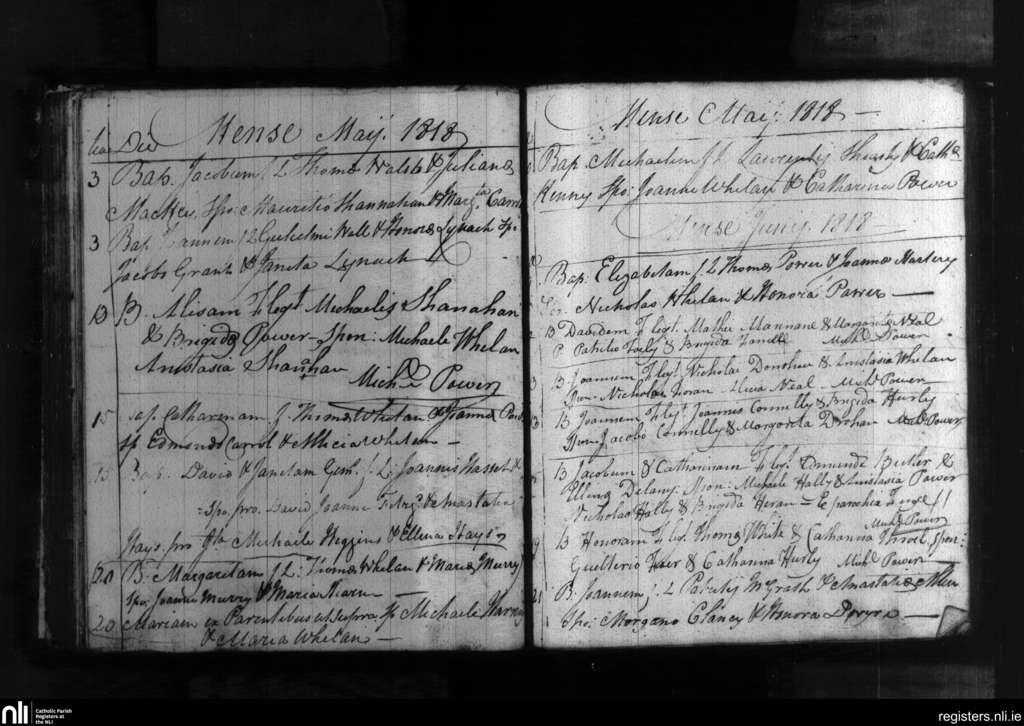 Die Mense Maij. 1818
3 Bap. Jacobum f. L Thomæ Walsh & Julianæ
Spo: Mauritio Shannahan & Marg.ta
3 Bap. Joannem f L Gulielmi Wall & Honoræ Lynach Sp:
Jacobo Grant & Janeta Lynach
13 B. Alisam F leg.t Michaelis Shanahan
& Brigidæ Power - Spon: Michaele Whelan
Anastasia Shannhan
Mich.l Power
15 Bap. Catharenam f. Thomæ Whelan & Joannæ
Sp Edmundo Carrol & Alicia Whelan -
15 Bap. David & Janetam Gem. f. L: Joannis
Spo, pro. David Joanne & Anastatia
Hays. pro Ja Michaele Higgins & Ellena Hays
20 B. Margaretam f L: Thomæ Whelan & Mariæ Murry
Spo, Joanne Murry & Maria
20 Mariam ex Parentibus ut supra Sp Michaele
& Maria Whelan -
Mense Maij. 1818 -
Bap. Michaelem f L Lawrentij & Cathæ
Henry Spo: Joanne Whelan & Catharina Power
Mense Junij. 1818 -
Bap. Elizabetam f L Thomæ Power & Joannæ
Nicholao Whelan & Honora Power -
B Davidem F leg.t Mathie Mannane & Margaritæ Neal
P Patritio & Brigida Mich.l Power
B Joannem F leg.t Nicholai Donohue & Anastasia Whelan
Spon - Nicholao Foran - Alicia Neal - Mich.l Power
B Joannem F leg.t Joannis Connelly & Brigida Hurly
Spon - Jacobo Connelly & Margarita Drohan Mich.l Power
B Jacobum & Catharinam F leg.t Edmundi Butler &
Ellena Delany. Spon: Michaele Hally & Anastasia Power
Nicholao Hally & Brigida Heran - E parochia
Mich.l Power
B Honoram F leg.t Thomæ White & Catharina Spon:
Guellerio & Catharina Hurly Mich.l Power
21 B. Joannem f. L Patritij McGrath & Anastatiæ
Spo: Morgano Clancy & Honora -
nli
Catholic Parish
Registers at
the NLI
registers.nli.ie